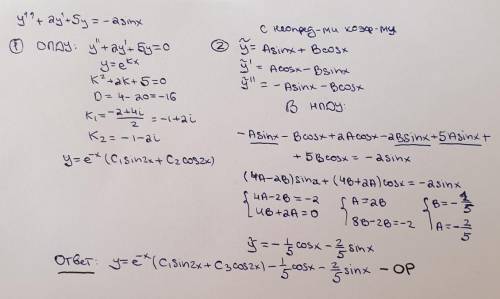 y'' + 2y' + 5y = -2sinx
① ОЛДУ: y'' + 2y' + 5y = 0
y = e^{kx}
k² + 2k + 5 = 0
D = 4 - 20 = -16
k₁ = \frac{-2+4i}{2} = -1+2i
k₂ = -1-2i
y = e^{-x} (C₁sin2x + C₂cos2x)
② с неопред-ми коэф-ми
ỹ = Asinx + Bcosx
ỹ' = Acosx - Bsinx
ỹ'' = -Asinx - Bcosx
В НЛДУ:
-Asinx - Bcosx + 2Acosx - 2Bsinx + 5Asinx +
+ 5Bcosx = -2sinx
(4A-2B)sinx + (4B+2A)cosx = -2sinx
{4A-2B=-2 {A=2B {B=-\frac{1}{5}
4B+2A=0 8B-2B=-2 A=-\frac{2}{5}
ỹ = -\frac{1}{5}cosx - \frac{2}{5}sinx
Ответ: y = e^{-x} (C₁sin2x + C₃cos2x) - \frac{1}{5}cosx - \frac{2}{5}sinx - ОР